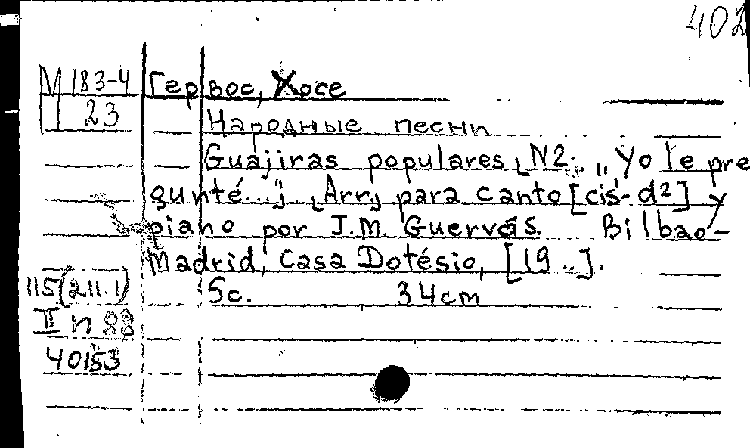 402
М 183-4
П 23
Гервос, Хосе
Народные песни
Guajiras populares, N2. „Yo le pre
gunté..."; Arr. para canto [cis¹-d²] y
piano por J.M. Guervós. Bilbao-
Madrid, Casa Dotésio, [19..].
5c. 34cm
115(2.11.1)
II n 88
40153